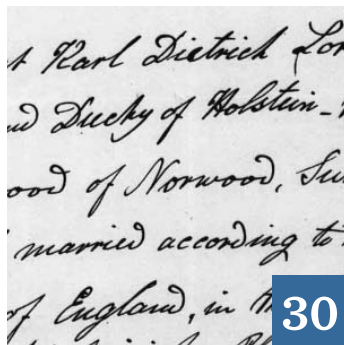 Karl Dietrich
Duchy of Holstein-
of Norwood,
married according to
of England, in
30